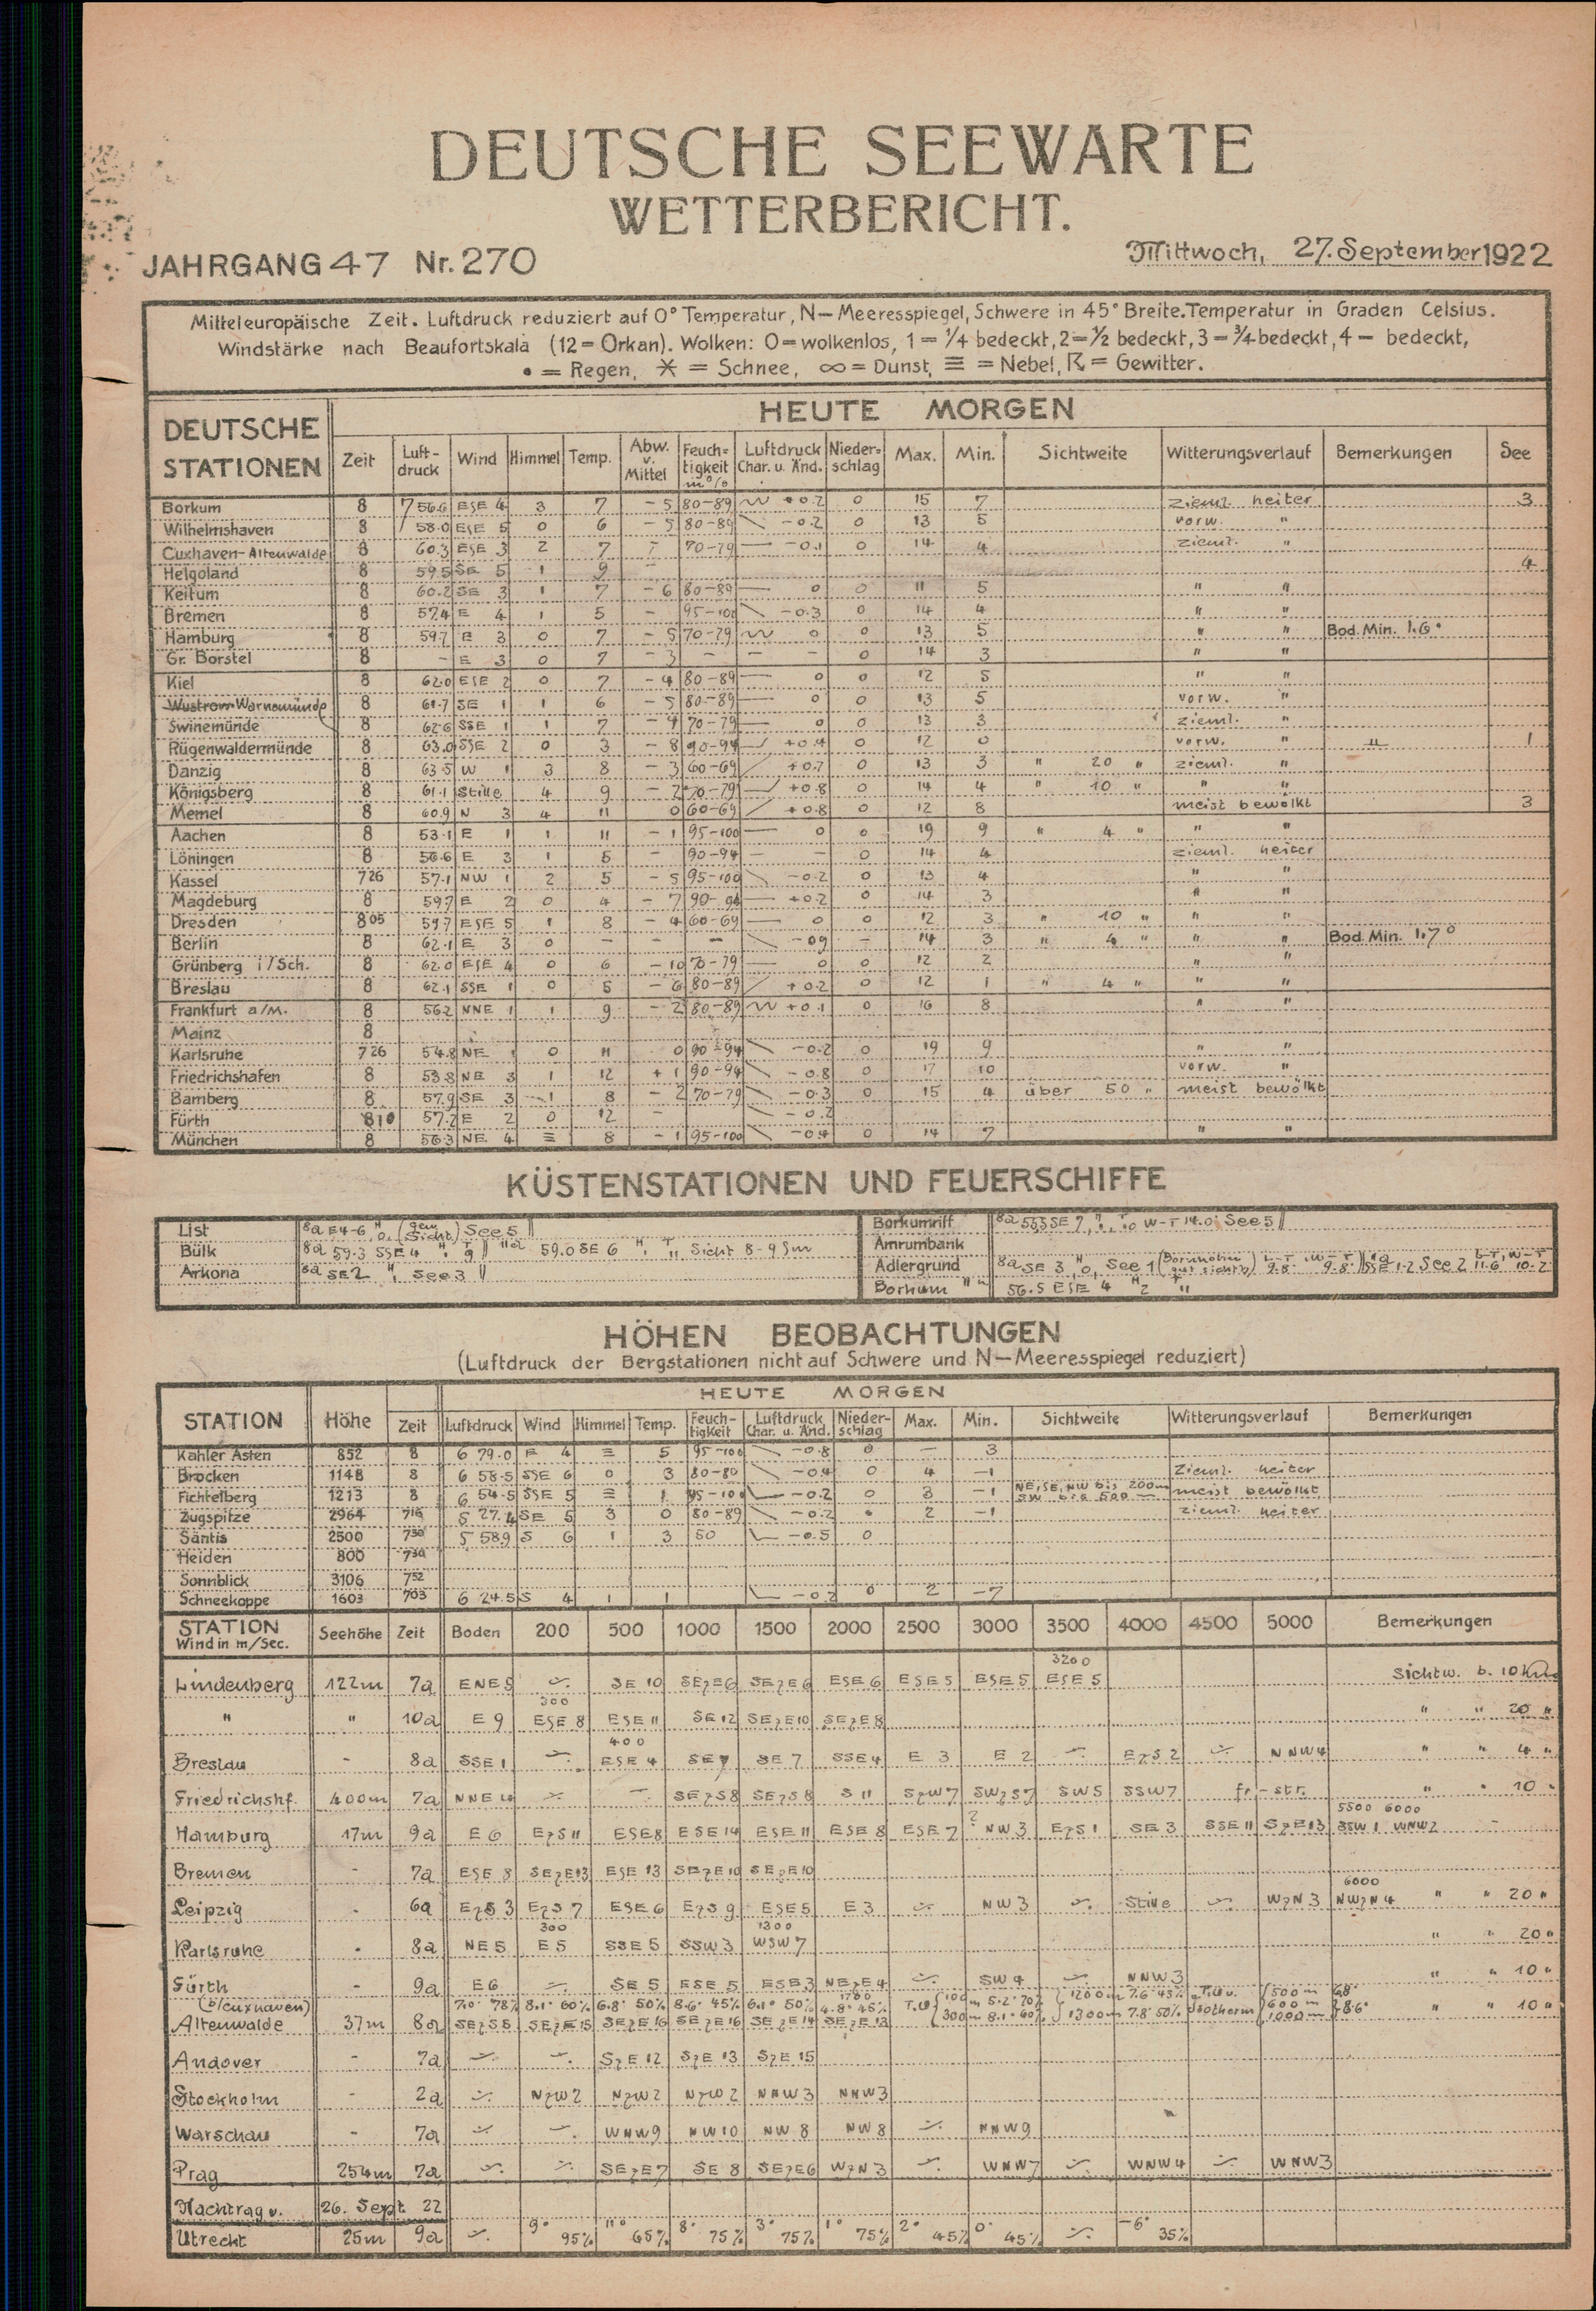 DEUTSCHE SEEWARTE
WETTERBERICHT.
JAHRGANG 47 Nr. 270 Mittwoch, 27. September 1922
Mitteleuropäische Zeit. Luftdruck reduziert auf 0° Temperatur, N— Meeresspiegel, Schwere in 45° Breite. Temperatur in Graden Celsius.
Windstärke nach Beaufortskala (12 = Orkan). Wolken: 0 = wolkenlos, 1 = 1/4 bedeckt, 2 = 1/2 bedeckt, 3 = 3/4 bedeckt, 4 — bedeckt,
• = Regen, ✶ = Schnee, ∞ = Dunst, ≡ = Nebel, ☈ = Gewitter.
DEUTSCHE STATIONEN HEUTE MORGEN
Zeit Luft-druck Wind Himmel Temp. Abw. v. Mittel Feuch=tigkeit in % Luftdruck Char. u. Änd. Nieder=schlag Max. Min. Sichtweite Witterungsverlauf Bemerkungen See
Borkum 8 756.6 ESE 4 3 7 -5 80-89 +0.2 0 15 7 zieml. heiter 3
Wilhelmshaven 8 58.0 ESE 5 0 6 -5 80-89 -0.2 0 13 5 vorw. "
Cuxhaven-Altenwalde 8 60.3 ESE 3 2 7 - 70-79 — -0.1 0 14 4 zieml. "
Helgoland 8 59.5 SE 5 1 9 - 4
Keitum 8 60.2 SE 3 1 7 -6 80-89 — 0 0 11 5 " "
Bremen 8 57.4 E 4 1 5 - 95-100 -0.3 0 14 4 " "
Hamburg 8 59.7 E 3 0 7 -5 70-79 0 0 13 5 " " Bod. Min. 1.6°
Gr. Borstel 8 - E 3 0 7 -3 - - - 0 14 3 " "
Kiel 8 62.0 ESE 2 0 7 -4 80-89 — 0 0 12 5 " "
Wustrow Warnemünde 8 61.7 SE 1 1 6 -5 80-89 — 0 0 13 5 vorw. "
Swinemünde 8 62.6 SSE 1 1 7 -4 70-79 — 0 0 13 3 zieml. "
Rügenwaldermünde 8 63.0 SSE 2 0 3 -8 90-94 +0.4 0 12 0 vorw. " " 1
Danzig 8 63.5 W 1 3 8 -3 60-69 +0.7 0 13 3 " 20 " zieml. "
Königsberg 8 61.1 Stille 4 9 -2 70-79 +0.8 0 14 4 " 10 " " "
Memel 8 60.9 N 3 4 11 0 60-69 +0.8 0 12 8 meist bewölkt 3
Aachen 8 53.1 E 1 1 11 -1 95-100 — 0 0 19 9 " 4 " " "
Löningen 8 56.6 E 3 1 5 - 90-94 - - 0 14 4 zieml. heiter
Kassel 7 26 57.1 NW 1 2 5 -5 95-100 -0.2 0 13 4 " "
Magdeburg 8 59.7 E 2 0 4 -7 90-94 — +0.2 0 14 3 " "
Dresden 8 05 59.7 ESE 5 1 8 -4 60-69 — 0 0 12 3 " 10 " " "
Berlin 8 62.1 E 3 0 - - - -0.9 - 14 3 " 4 " " " Bod. Min. 1.7°
Grünberg i/Sch. 8 62.0 ESE 4 0 6 -10 70-79 — 0 0 12 2 " "
Breslau 8 62.1 SSE 1 0 5 -6 80-89 +0.2 0 12 1 " 4 " " "
Frankfurt a/M. 8 56.2 NNE 1 1 9 -2 80-89 +0.1 0 16 8 " "
Mainz 8
Karlsruhe 7 26 54.8 NE 1 0 11 0 90-94 -0.2 0 19 9 " "
Friedrichshafen 8 53.8 NE 3 1 12 +1 90-94 -0.8 0 17 10 vorw. "
Bamberg 8 57.9 SE 3 1 8 -2 70-79 -0.3 0 15 4 über 50 " meist bewölkt
Fürth 8 10 57.2 E 2 0 12 - -0.2
München 8 56.3 NE 4 ≡ 8 -1 95-100 -0.4 0 14 7 " "
KÜSTENSTATIONEN UND FEUERSCHIFFE
List 8a E 4-6 H 0 (gem Sicht) See 5
Bülk 8a 59.3 SSE 4 H 1 T 9 11a 59.0 SE 6 H 1 T 11 Sicht 8-9 Sm
Arkona 8a SE 2 H 1 See 3
Borkumriff 8a W-T 14.0 See 5
Amrumbank
Adlergrund 8a SE 3 H 0 See 1 (Bornholm gut sichtb.) L-T 9.8 W-T 9.8 SSE 1-2 See 2 L-T 11.6 W-T 10.2
Borkum 11a 56.5 ESE 4 H 2 T 11
HÖHEN BEOBACHTUNGEN
(Luftdruck der Bergstationen nicht auf Schwere und N—Meeresspiegel reduziert)
HEUTE MORGEN
STATION Höhe Zeit Luftdruck Wind Himmel Temp. Feuch-tigkeit Luftdruck Char. u. Änd. Nieder-schlag Max. Min. Sichtweite Witterungsverlauf Bemerkungen
Kahler Asten 852 8 679.0 E 4 ≡ 5 95-100 -0.8 0 — 3
Brocken 1148 8 658.5 SSE 6 0 3 80-80 -0.4 0 4 -1 zieml. heiter
Fichtelberg 1213 8 654.5 SSE 5 ≡ 1 95-100 -0.2 0 3 -1 NE, SE, NW bis 200m SW bis 500 m meist bewölkt
Zugspitze 2964 7 16 527.4 SE 5 3 0 80-89 -0.2 • 2 -1 zieml. heiter
Säntis 2500 7 30 558.9 S 6 1 3 50 -0.5 0
Heiden 800 7 30
Sonnblick 3106 7 52
Schneekoppe 1603 7 03 624.5 S 4 1 1 -0.2 0 2 -7
STATION Wind in m/Sec. Seehöhe Zeit Boden 200 500 1000 1500 2000 2500 3000 3500 4000 4500 5000 Bemerkungen
3200
Lindenberg 122m 7a ENE 5 -.- SE 10 SEzE 6 SEzE 6 ESE 6 ESE 5 ESE 5 ESE 5 Sichtw. b. 10 km
300
" " 10a E 9 ESE 8 ESE 11 SE 12 SEzE 10 SEzE 8 " " 20 "
400
Breslau - 8a SSE 1 -.- ESE 4 SE 7 SE 7 SSE 4 E 3 E 2 -.- EzS 2 -.- NNW 4 " " 4 "
Friedrichshf. 400m 7a NNE 4 -.- - SEzS 8 SEzS 8 S 11 SzW 7 SWzS 7 SW 5 SSW 7 fr.-str. " " 10 "
5500 6000
Hamburg 17m 9a E 6 EzS 11 ESE 8 ESE 14 ESE 11 ESE 8 ESE 7 ? NW 3 EzS 1 SE 3 SSE 11 SzE 13 SSW 1 WNW 2 -
Bremen - 7a ESE 8 SEzE 13 ESE 13 SEzE 10 SEzE 10
6000
Leipzig - 6a EzS 3 EzS 7 ESE 6 EzS 9 ESE 5 E 3 -.- NW 3 -.- Stille -.- WzN 3 NWzN 4 " " 20 "
300 1300
Karlsruhe - 8a NE 5 E 5 SSE 5 SSW 3 WSW 7 " " 20 "
Fürth - 9a E 6 -.- SE 5 ESE 5 ESE 3 NEzE 4 -.- SW 4 -.- NNW 3 " " 10 "
(b/Cuxhaven) 7.0° 78% 8.1° 60% 6.8° 50% 8.6° 45% 6.1° 50% 1780 4.8° 45% T.U. 100m 5.2° 70% 1200m 7.6° 45% T.U. u. 500 m 6.8°
Altenwalde 37m 8a SEzS 8 SEzE 15 SEzE 16 SEzE 16 SEzE 14 SEzE 13 300m 8.1° 60% 1300m 7.8° 50% Isotherm 600 m 1000 m 8.6° " " 10 "
Andover - 7a -.- -.- SzE 12 SzE 13 SzE 15
Stockholm - 2a -.- NzW 2 NzW 2 NzW 2 NNW 3 NNW 3
Warschau - 7a -.- -.- WNW 9 NW 10 NW 8 NW 8 -.- NNW 9
Prag 254m 7a -.- -.- SEzE 7 SE 8 SEzE 6 WzN 3 -.- WNW 7 -.- WNW 4 -.- WNW 3
Nachtrag v. 26. Sept. 22
Utrecht 25m 9a -.- 9° 95% 11° 65% 8° 75% 3° 75% 1° 75% 2° 45% 0° 45% -.- -6° 35%